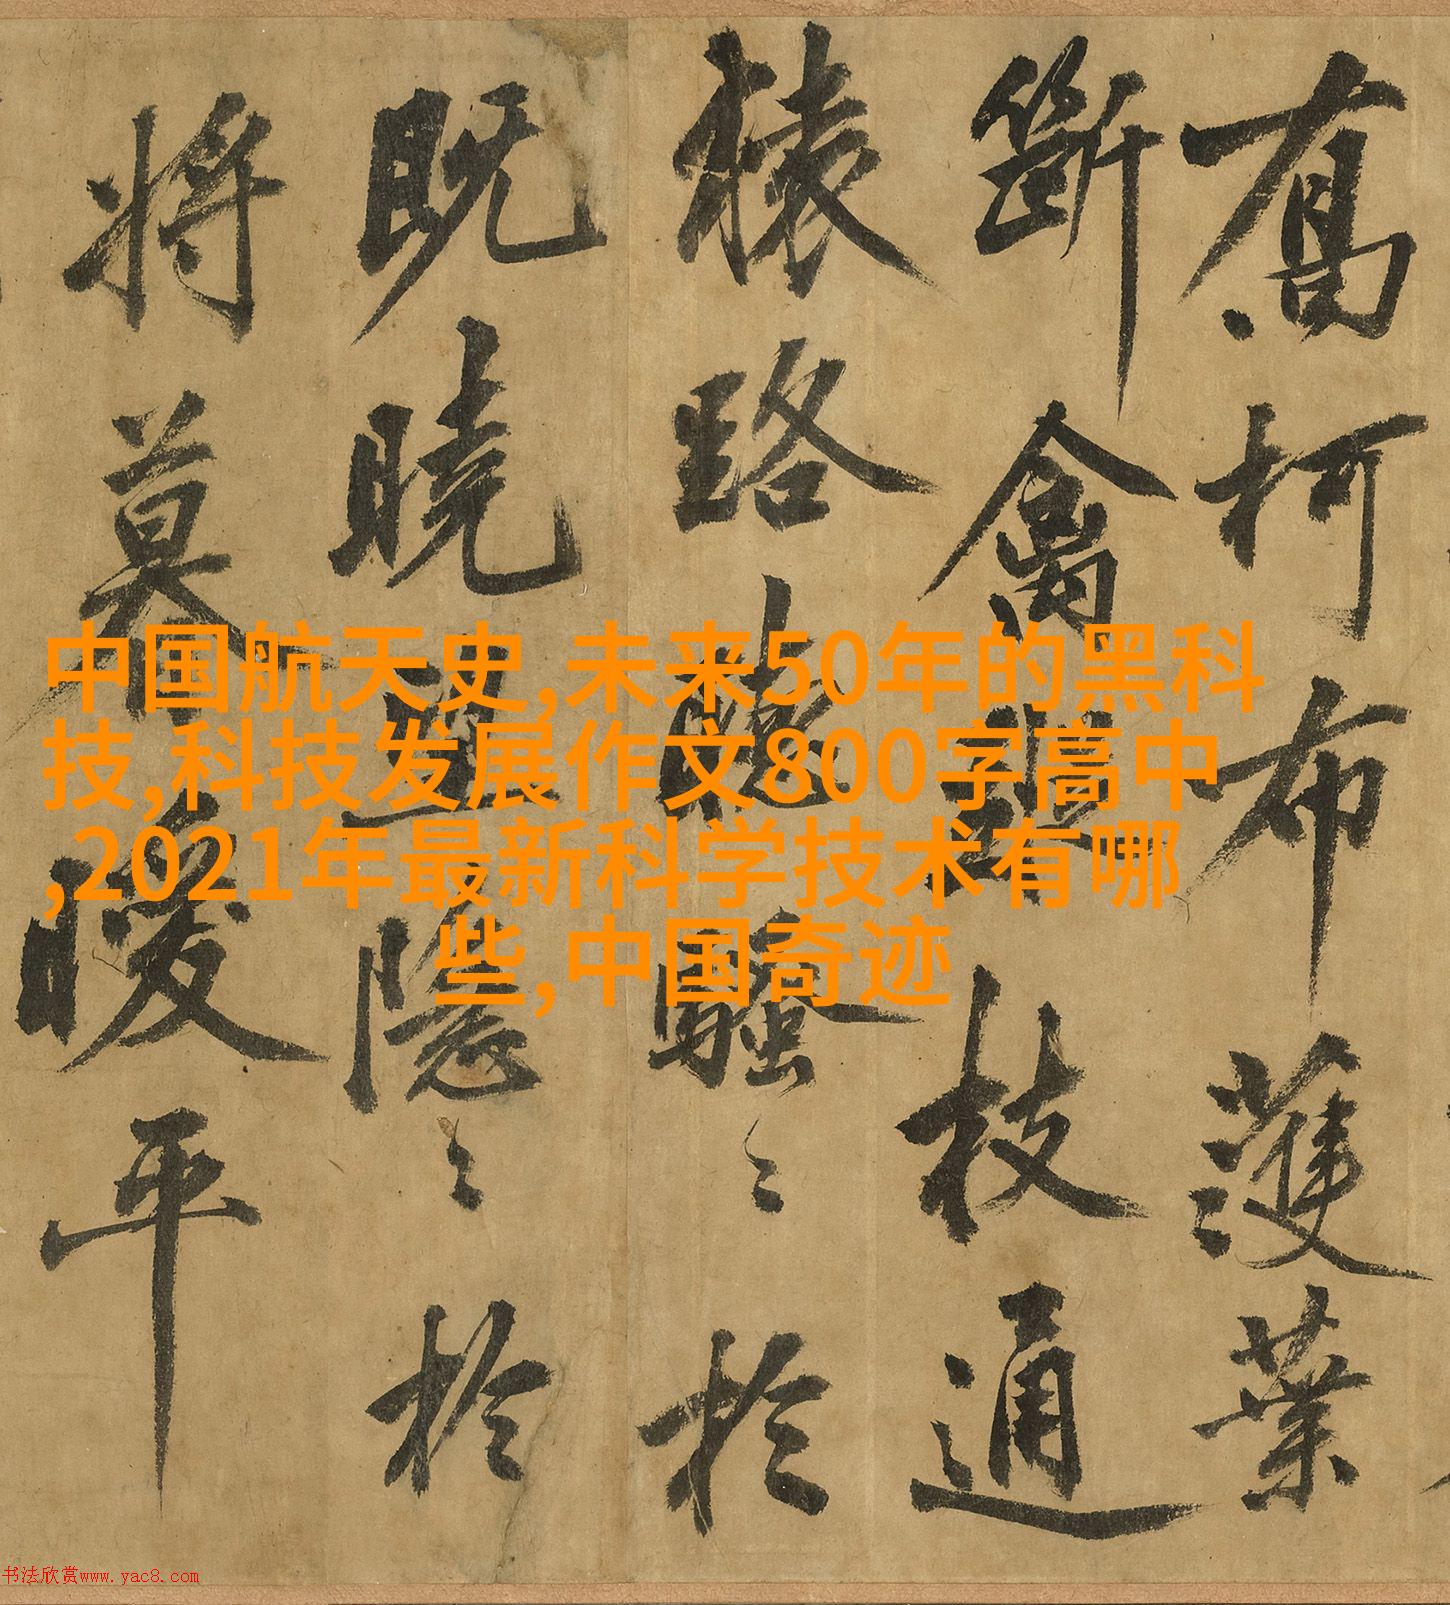 柯布護葉
斷禽枝通
猿路聽騷〻於
既曉隱〻於
將暮曖平
中国航天史,未来50年的黑科
技,科技发展作文800字高中
,2021年最新科学技术有哪
些,中国奇迹
书法欣赏www.yac8.com